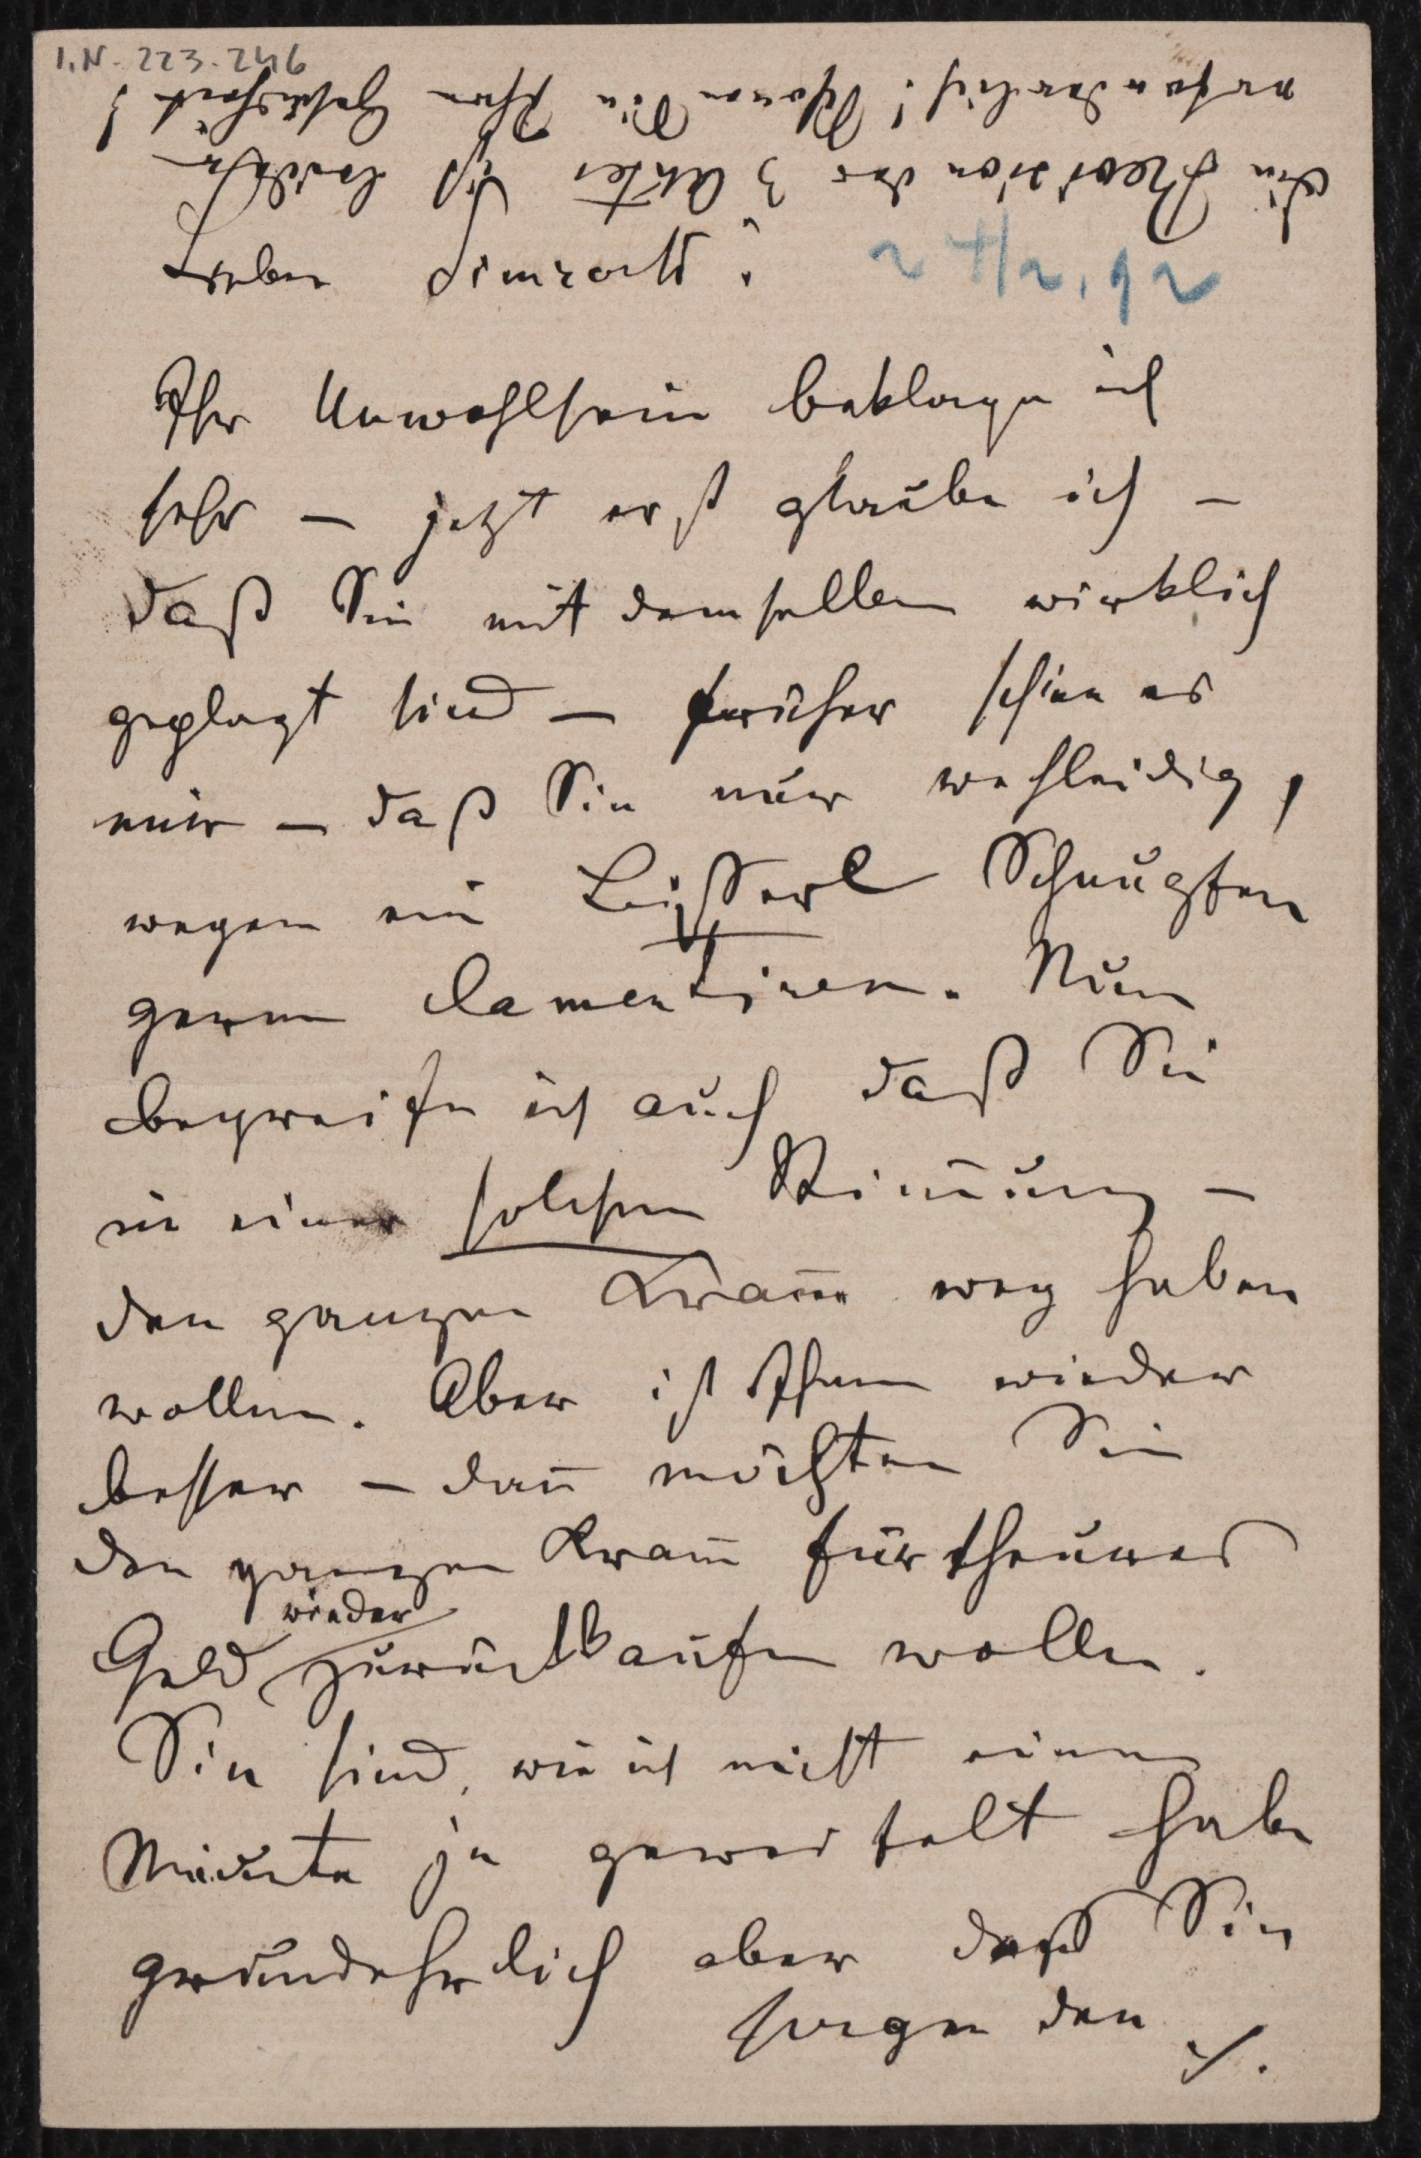 I.N. 223.246
die Revision der 3 Akte ist bidtschön
erforderlich! Schonen Sie Ihre Gesundheit!
Lieber Simrock! 24/2.92
Ihr Unwohlsein beklage ich
sehr – jetzt erst glaube ich –
daß Sie mit demselben wirklich
geplagt sind – früher schien es
mir – daß Sie nur wehleidig,
wegen ein Bisserl Schnupfen
gerne lamentiren. Nun
begreife ich auch daß Sie
in einer solchen Stim̅ung –
den ganzen Kram̅ weg haben
wollen. Aber ist Ihnen wieder
besser – dan̅ möchten Sie
den ganzen Kram̅ für theures
wieder
Geld zurückkaufen wollen.
Sie sind, wie ich nicht eine
Minute je gezweifelt habe
grundehrlich aber daß Sie
sorgen den ./.